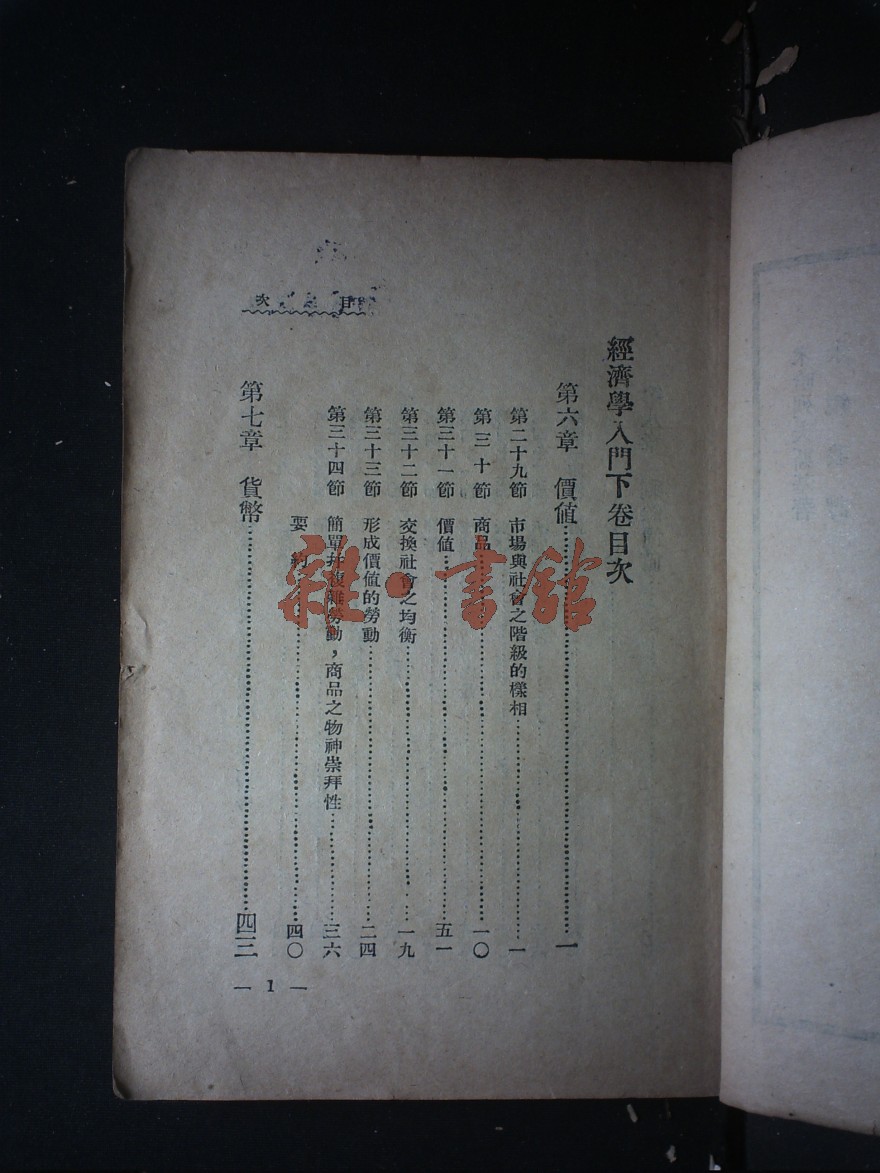 經濟學入門下卷目次
第六章　價值……一
第二十九節　市場與社會之階級的樣相……一
第三十節　商品……一〇
第三十一節　價值……五一
第三十二節　交換社會之均衡……一九
第三十三節　形成價值的勞動……二四
第三十四節　簡單幷複雜勞動，商品之物神崇拜性……三六
要約……四〇
第七章　貨幣……四三
次　目
— 1 —
雜·書館